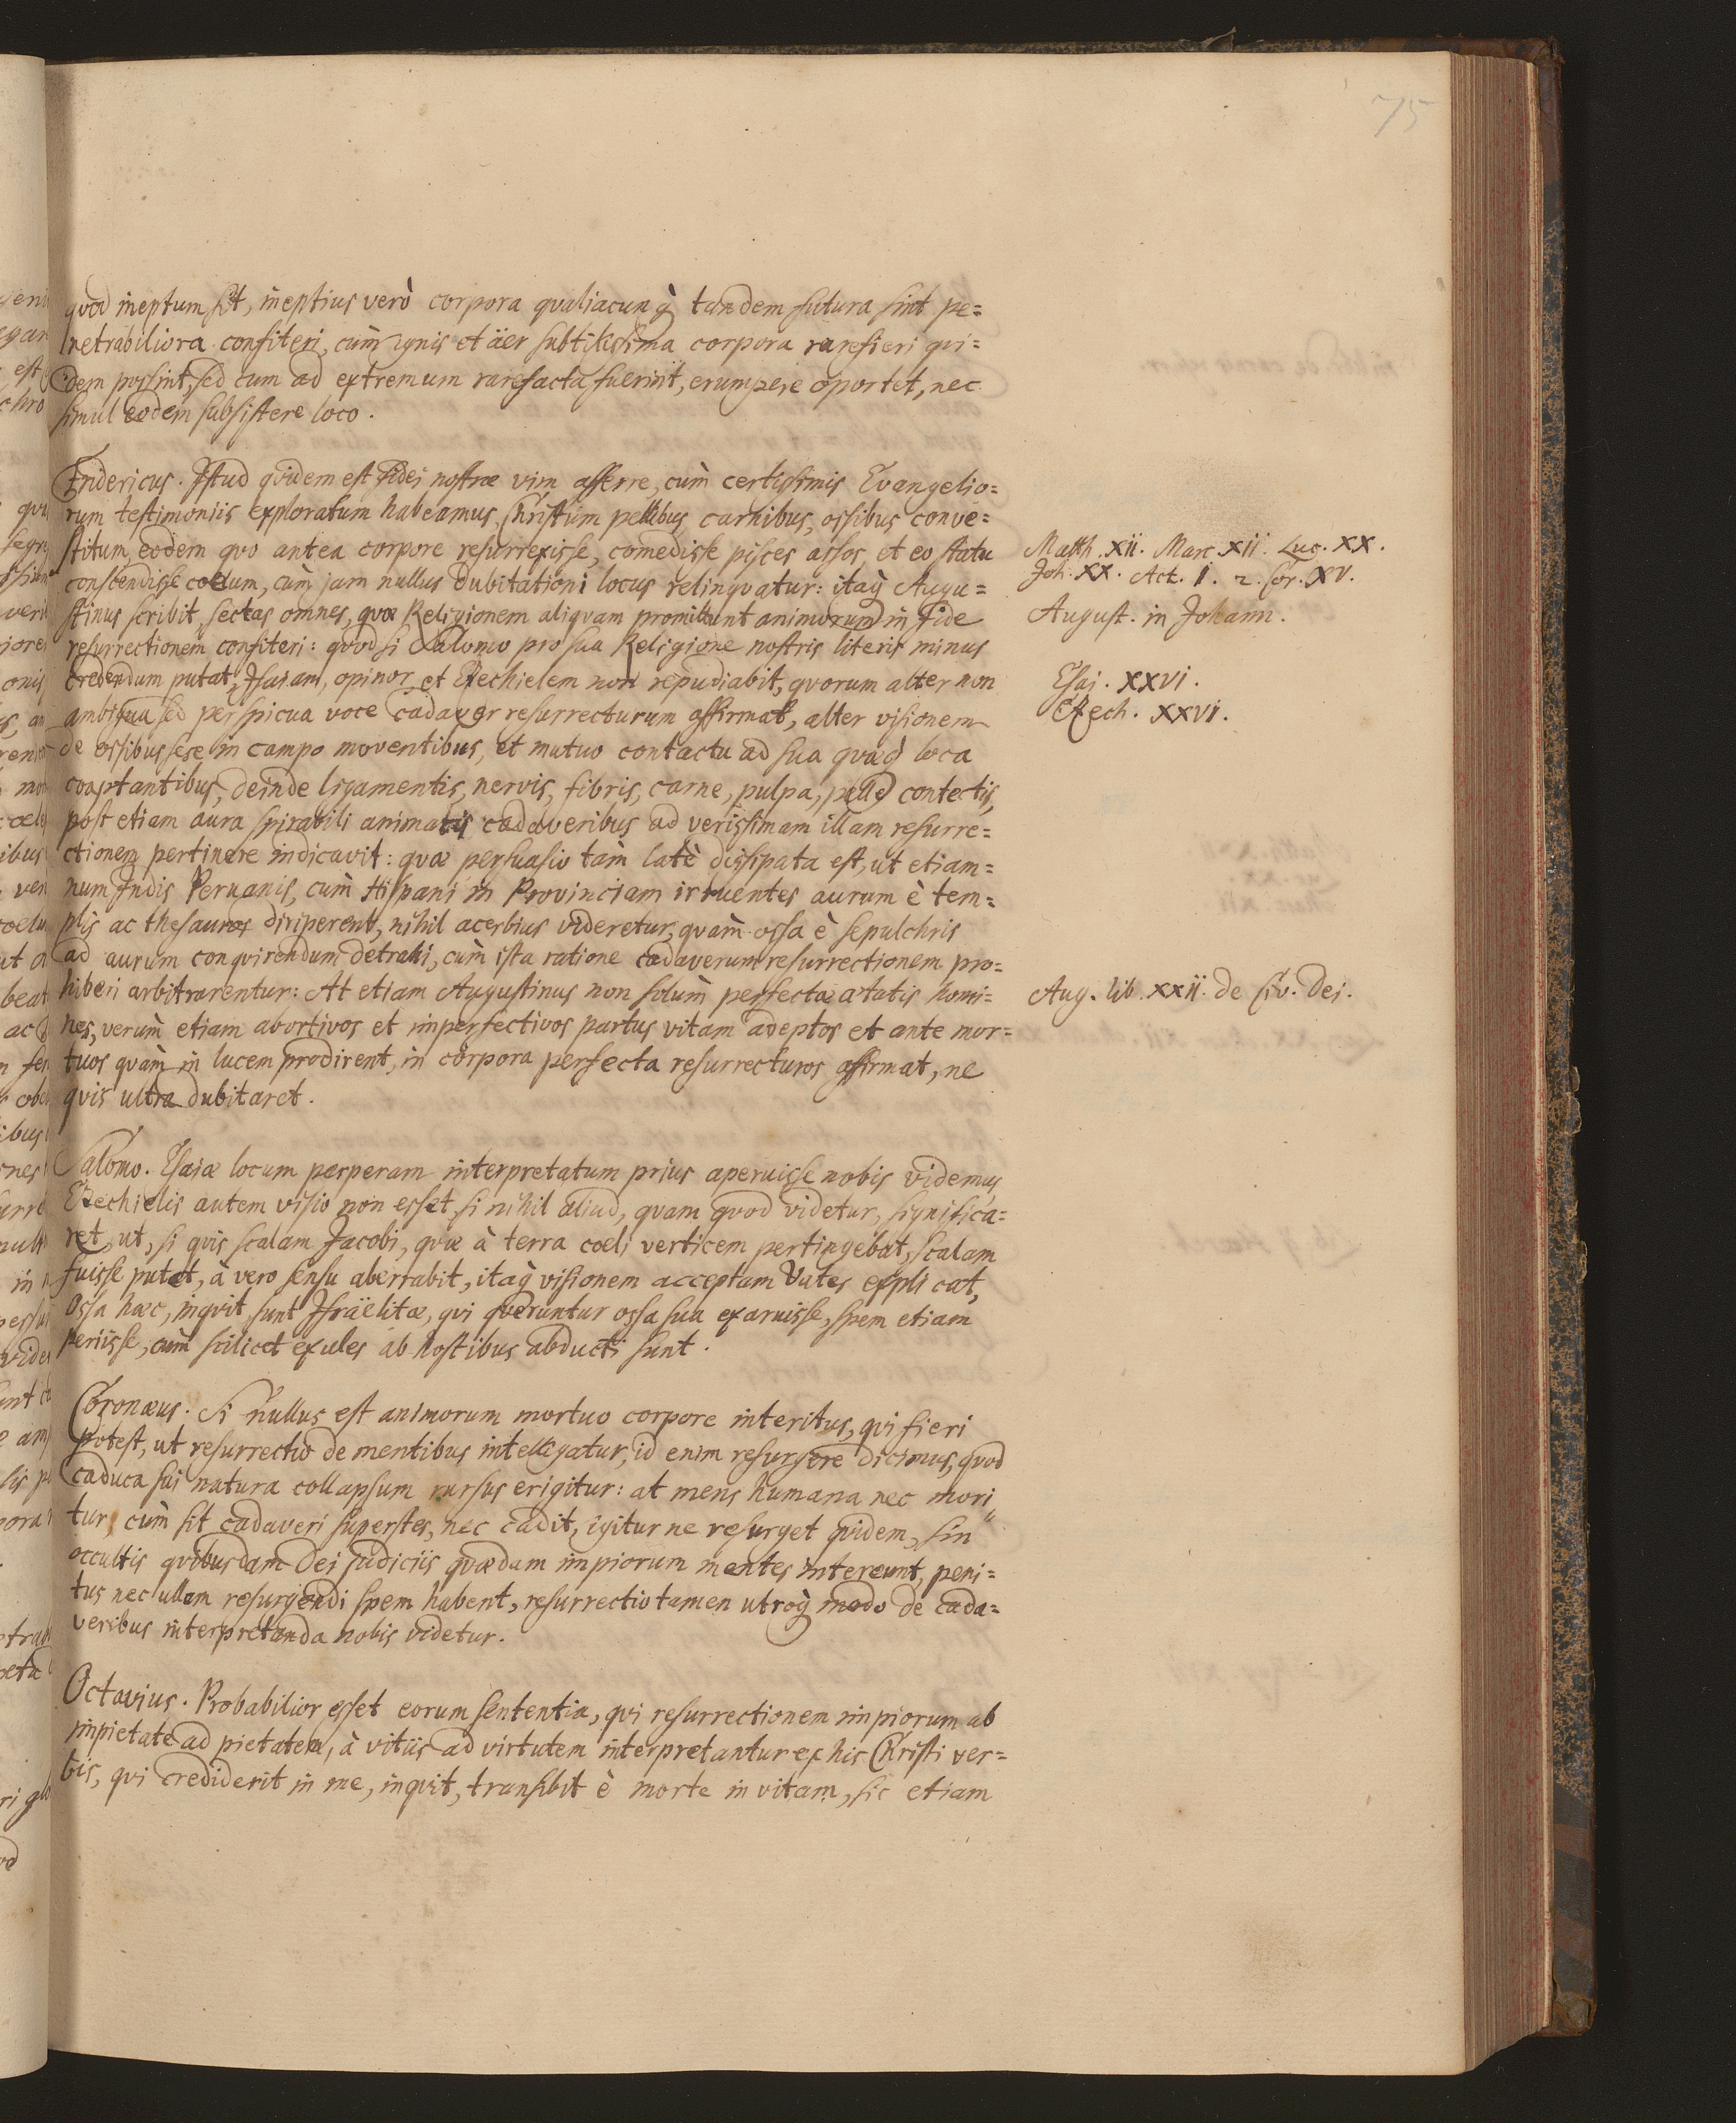 75
quod ineptum sit, ineptius verò corpora qualiacunq̀ tandem futura sint pe=
netrabiliora confiteri, cùm ignis et äer subtilissima corpora rarefieri qui=
dem possint, sed cum ad extremum rarefacta fuerint, erumpere oportet, nec
simul eodem subsistere loco.
Fridericus. Istud quidem est fidei nostræ vim afferre, cùm certissimis Evangelio=
rum testimoniis exploratum habeamus, Christum pellibus carnibus, ossibus conve=
stitum, eodem quo antea corpore resurrexisse, comedisse pisces assos, et eo statu
conscendisse coelum, cùm jam nullus dubitationi locus relinquatur: itaq̀ Augu=
stinus scribit, sectas omnes, quæ Religionem aliquam promittunt animorum in fide
resurrectionem confiteri: quod si Salomo pro sua Religione nostris literis minus
credendum putat, Isaiam, opinor, et Ezechielem non repudiabit, quorum alter non
ambigua sed perspicua voce cadaver resurrecturum affirmat, alter visionem
de ossibus sese in campo moventibus, et mutuo contactu ad sua quæq̀ loca
coaptantibus, deinde ligamentis, nervis, fibris, carne, pulpa, pelle contectis,
post etiam aura spirabili animatis cadaveribus ad verissimam illam resurre=
ctionem pertinere indicavit: quæ persuasio tàm latè dissipata est, ut etiam=
num Indis Peruanis, cùm Hispani in Provinciam irruentes aurum è tem=
plis ac thesauros diriperent, nihil acerbius videretur, quàm ossa è sepulchris
ad aurum conquirendum detrahi, cùm ista ratione cadaverum resurrectionem pro=
hiberi arbitrarentur: At etiam Augustinus non solùm perfectæ ætatis homi=
nes, verùm etiam abortivos et imperfectivos partus vitam adeptos et ante mor=
tuos quàm in lucem prodirent, in corpora perfecta resurrecturos affirmat, ne
quis ultra dubitaret.
Salomo. Esaiæ locum perperam interpretatum prius aperuisse nobis videmus
Ezechielis autem visio non esset, si nihil aliud, quam quod videtur, significa=
ret, ut, si quis scalam Jacobi, quæ à terra coeli verticem pertingebat, scalam
fuisse putet, à vero sensu aberrabit, itaq̀ visionem acceptam Vates explicat,
Ossa hæc, inquit, sunt Israëlitæ, qui queruntur ossa sua exaruisse, spem etiam
periisse, cùm scilicet exules ab hostibus abducti sunt.
Coronæus. Si nullus est animorum mortuo corpore interitus, qui fieri
potest, ut resurrectio de mentibus intelligatur, id enim resurgere dicimus, quod
caduca sui natura collapsum rursus erigitur: at mens humana nec mori=
tur, cùm sit cadaveri superstes, nec cadit, igitur ne resurget quidem, sin
occultis quibusdam Dei judiciis quædam impiorum mentes intereunt, peni=
tus nec ullam resurgendi spem habent, resurrectio tamen utroq̀ modo de cada=
veribus interpretanda nobis videtur.
Octavius. Probabilior esset eorum sententia, qui resurrectionem impiorum ab
impietate ad pietatem, à vitiis ad virtutem interpretantur ex his Christi ver=
bis, qui crediderit in me, inquit, transibit è morte in vitam, sic etiam
Matth. XII. Marc. XII. Luc. XX.
Joh. XX. Act. I. 2. Cor. XV.
August. in Johann.
Esai. XXVI.
Ezech. XXVI.
Aug. lib. XXII. de Civ. Dei.